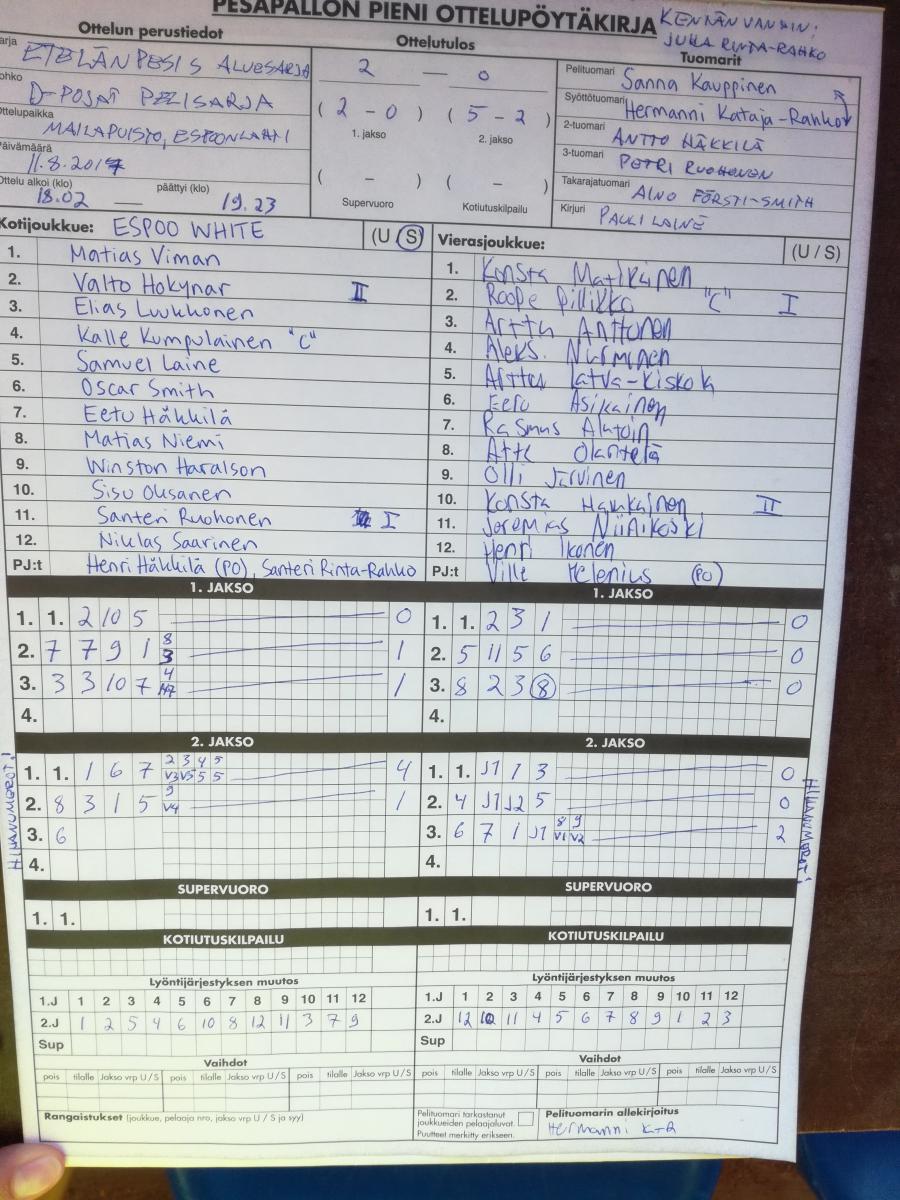 PESÄPALLON PIENI OTTELUPÖYTÄKIRJA
KENTÄN VANHIN:
JUHA RINTA-RAHKO
Ottelun perustiedot
Ottelutulos
Tuomarit
ETELÄNPESIS ALUESARJA
D-POJAT PELISARJA
Ottelupaikka
MAILAPUISTO, ESPOONLAHTI
Päivämäärä
11.8.2017
Ottelu alkoi (klo) päättyi (klo)
18.02 — 19.23
2 — 0
( 2 - 0 ) ( 5 - 2 )
1. jakso 2. jakso
( - ) ( - )
Supervuoro Kotiutuskilpailu
Pelituomari Sanna Kauppinen
Syöttötuomari Hermanni Kataja-Rahko
2-tuomari ANTTO HÄKKILÄ
3-tuomari PETRI RUOHONEN
Takarajatuomari AINO FÖRSTI-SMITH
Kirjuri PAULI LAINE
Kotijoukkue: ESPOO WHITE (U/S)
1. Matias Viman
2. Valto Hokynar II
3. Elias Luukkonen
4. Kalle Kumpulainen "C"
5. Samuel Laine
6. Oscar Smith
7. Eetu Häkkilä
8. Matias Niemi
9. Winston Haralson
10. Sisu Oksanen
11. Santeri Ruohonen I
12. Niklas Saarinen
PJ:t Henri Häkkilä (PO), Santeri Rinta-Rahko
Vierasjoukkue: (U/S)
1. Konsta Matikainen
2. Roope Pillikko "C" I
3. Arttu Anttonen
4. Aleks. Nurminen
5. Arttu Latva-Kiskola
6. Eetu Asikainen
7. Rasmus Alatoin
8. Atte Olantelä
9. Olli Järvinen
10. Konsta Haukkainen II
11. Joremias Niinikoski
12. Henri Ikonen
PJ:t Ville Helenius (PO)
1. JAKSO
1. 1. 2 10 5 0
2. 7 7 9 1 8 3 1
3. 3 3 10 7 4 1
4.
1. JAKSO
1. 1. 2 3 1 0
2. 5 11 5 6 0
3. 8 2 3 8 0
4.
2. JAKSO
1. 1. 1 6 7 2 3 4 5 4
V3 V5 5 5
2. 8 3 1 5 9 1
V4
3. 6
4.
2. JAKSO
1. 1. J1 1 3 0
2. 4 J1 J2 5 0
3. 6 7 1 J1 8 9 2
V1 V2
4.
HIHANUMEROT!
HIHANUMEROT!
SUPERVUORO
1. 1.
SUPERVUORO
1. 1.
KOTIUTUSKILPAILU
KOTIUTUSKILPAILU
Lyöntijärjestyksen muutos
1.J 1 2 3 4 5 6 7 8 9 10 11 12
2.J 1 2 5 4 6 10 8 12 11 3 7 9
Sup
Lyöntijärjestyksen muutos
1.J 1 2 3 4 5 6 7 8 9 10 11 12
2.J 12 10 11 4 5 6 7 8 9 1 2 3
Sup
Vaihdot
pois tilalle Jakso vrp U/S pois tilalle Jakso vrp U/S pois tilalle Jakso vrp U/S
Vaihdot
pois tilalle Jakso vrp U/S pois tilalle Jakso vrp U/S pois tilalle Jakso vrp U/S
Rangaistukset (joukkue, pelaaja nro, jakso vrp U / S ja syy)
Pelituomari tarkastanut
joukkueiden pelaajaluvat.
Puutteet merkitty erikseen.
Pelituomarin allekirjoitus
Hermanni K-R